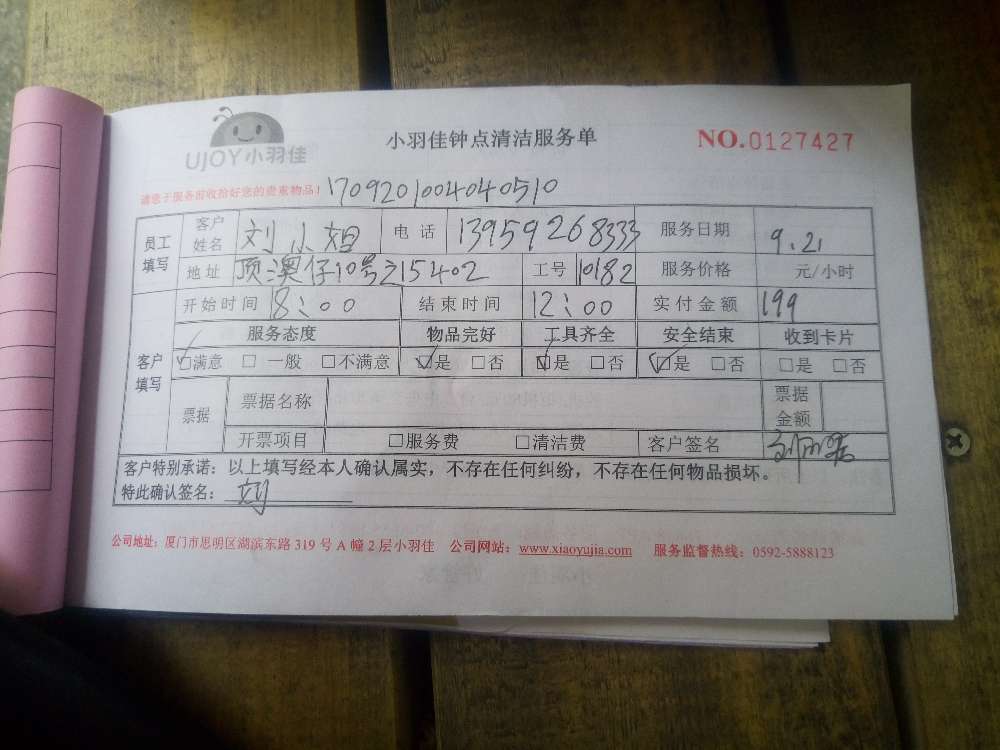 UJOY小羽佳
小羽佳钟点清洁服务单
NO.0127427
请您于服务前收拾好您的贵重物品!
1709201004040510
员工填写 客户姓名 刘小姐 电话 13959268333 服务日期 9.21
地址 顶澳仔10号之15402 工号 10182 服务价格 元/小时
客户填写 开始时间 8:00 结束时间 12:00 实付金额 199
服务态度 物品完好 工具齐全 安全结束 收到卡片
☑满意 □一般 □不满意 ☑是 □否 ☑是 □否 ☑是 □否 □是 □否
票据 票据名称 票据金额
开票项目 □服务费 □清洁费 客户签名 刘
客户特别承诺:以上填写经本人确认属实,不存在任何纠纷,不存在任何物品损坏。
特此确认签名:刘
公司地址:厦门市思明区湖滨东路 319 号 A 幢 2 层小羽佳 公司网站:www.xiaoyujia.com 服务监督热线:0592-5888123